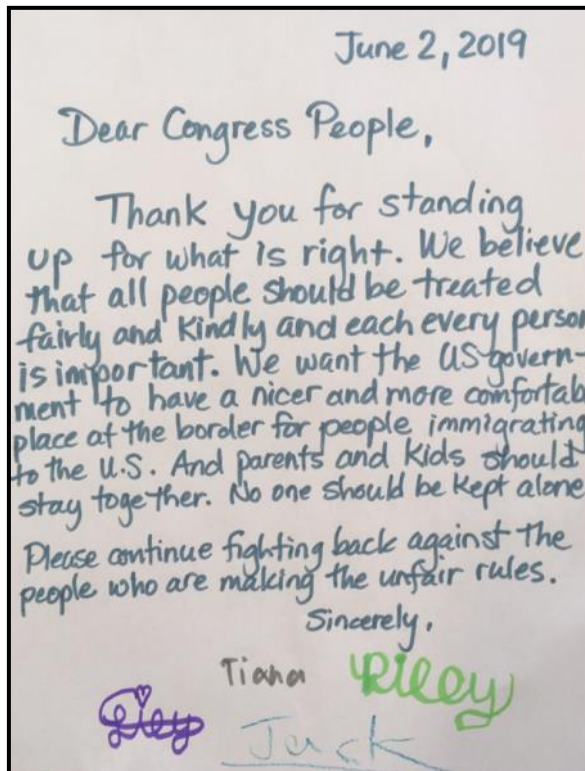 June 2, 2019
Dear Congress People,
Thank you for standing
up for what is right. We believe
that all people should be treated
fairly and kindly and each every person
is important. We want the US govern-
ment to have a nicer and more comfortab
place at the border for people immigrating
to the U.S. And parents and kids should
stay together. No one should be kept alone
Please continue fighting back against the
people who are making the unfair rules.
Sincerely,
Tiana Riley
Jack